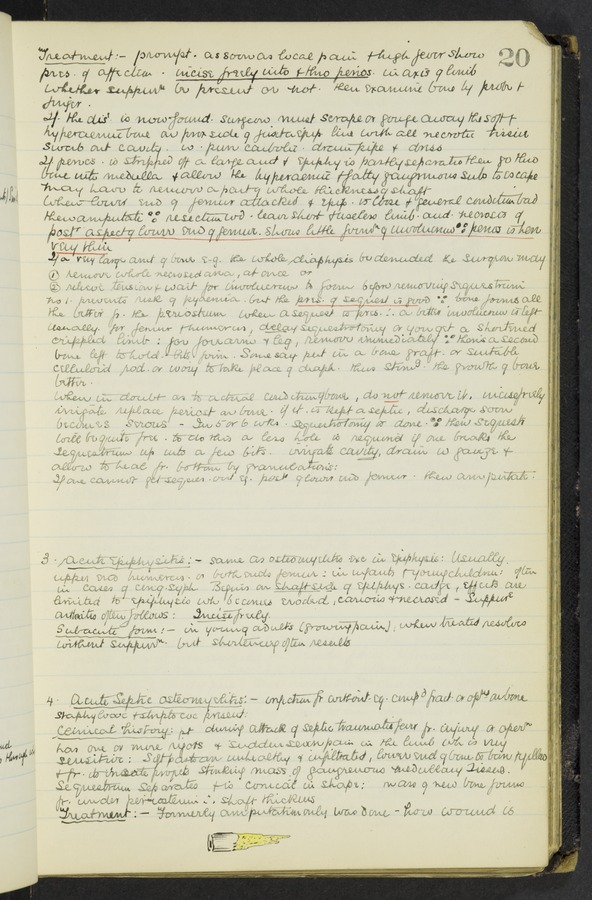 20
Treatment:- prompt. as soon as local pain & high fever show
pres. of affection. incise freely into & thro perios. in axis of limb
whether suppurn be present or not. then examine bone by probe &
finger.
If the dis is now found. surgeon must scrape or gouge away the soft
hyperaemic bone on prox side of juxtaepip line with all necrotic tissue
swab out cavity. w. pure carbolic. drain pipe & dress
If perios. is stripped off a large amt & epiphy is partly separated then go thro
bone into medulla & allow the hyperaemic & fatty gangrenous subs to escape
may have to remove a part of whole thickness of shaft
When lower end of femur attacked & epip. is loose & general condition bad
then amputate ∵ resection wd. leave short & useless limb. and necrosis of
postr aspect of lower end of femur. shows little formn of involucrum ∵ perios is here
very thin
If a very large amt of bone e.g. the whole diaphysis be denuded the surgeon may
① remove whole necrosed area, at once or
② relieve tension & wait for involucrum to form before removing sequestrum
no 1. prevents risk of pyaemia. but the pres. of sequest is good ∵ bone forms all
the better fr. the periosteum when a sequest is pres. ∴ a better involucrum is left
Usually for femur & humerus, delay sequestrotomy or you get a shortened
crippled limb: for forearm & leg, remove immediately ∵ there is a second
bone left to hold the form. Some say put in a bone graft. or suitable
celluloid rod. or ivory to take place of diaph. thus stimg. the growth of bone
better.
When in doubt as to actual condition of bone, do not remove it. incise freely
irrigate replace periost on bone. If it is kept aseptic, discharge soon
becomes serous - In 5 or 6 wks. sequestrotomy is done ∵ then sequest
will be quite free. to do this a less hole is required if one breaks the
sequestrum up into a few bits. irrigate cavity, drain w gauze &
allow to heal fr. bottom by granulations:
If one cannot get seques. out eg. post of lower end femur. then amputate.
3. Acute Epiphysitis:- same as osteomyelitis exc in Epiphysis: Usually.
upper end humerus. or both ends femur: in infants & young children: often
in cases of cong. syph. Begins on shaft side of epiphys. cartge, effects are
limited to epiphysis wh becomes eroded, carious & necrosed - Suppure
arthritis often follows: Incise freely.
Subacute form:- in young adults (growing pain), when treated resolves
without suppurn. but shortening often results
4. Acute Septic osteomyelitis:- infection fr without eg. compd fract or opn on bone
staphylococ & streptococ present.
Clinical history: pt during attack of septic traumatic fever fr. injury or opern
has one or more rigors & sudden severe pain in the limb wh is very
sensitive: Soft parts are unhealthy & infiltrated, lower end of bone is bare & yellow
& fr. its inside projects stinking mass of gangrenous medullary tissue.
Sequestrum separates & is conical in shape: mass of new bone forms
fr. under periosteum ∴ shaft thickens
Treatment:- Formerly amputation only was done - how wound is